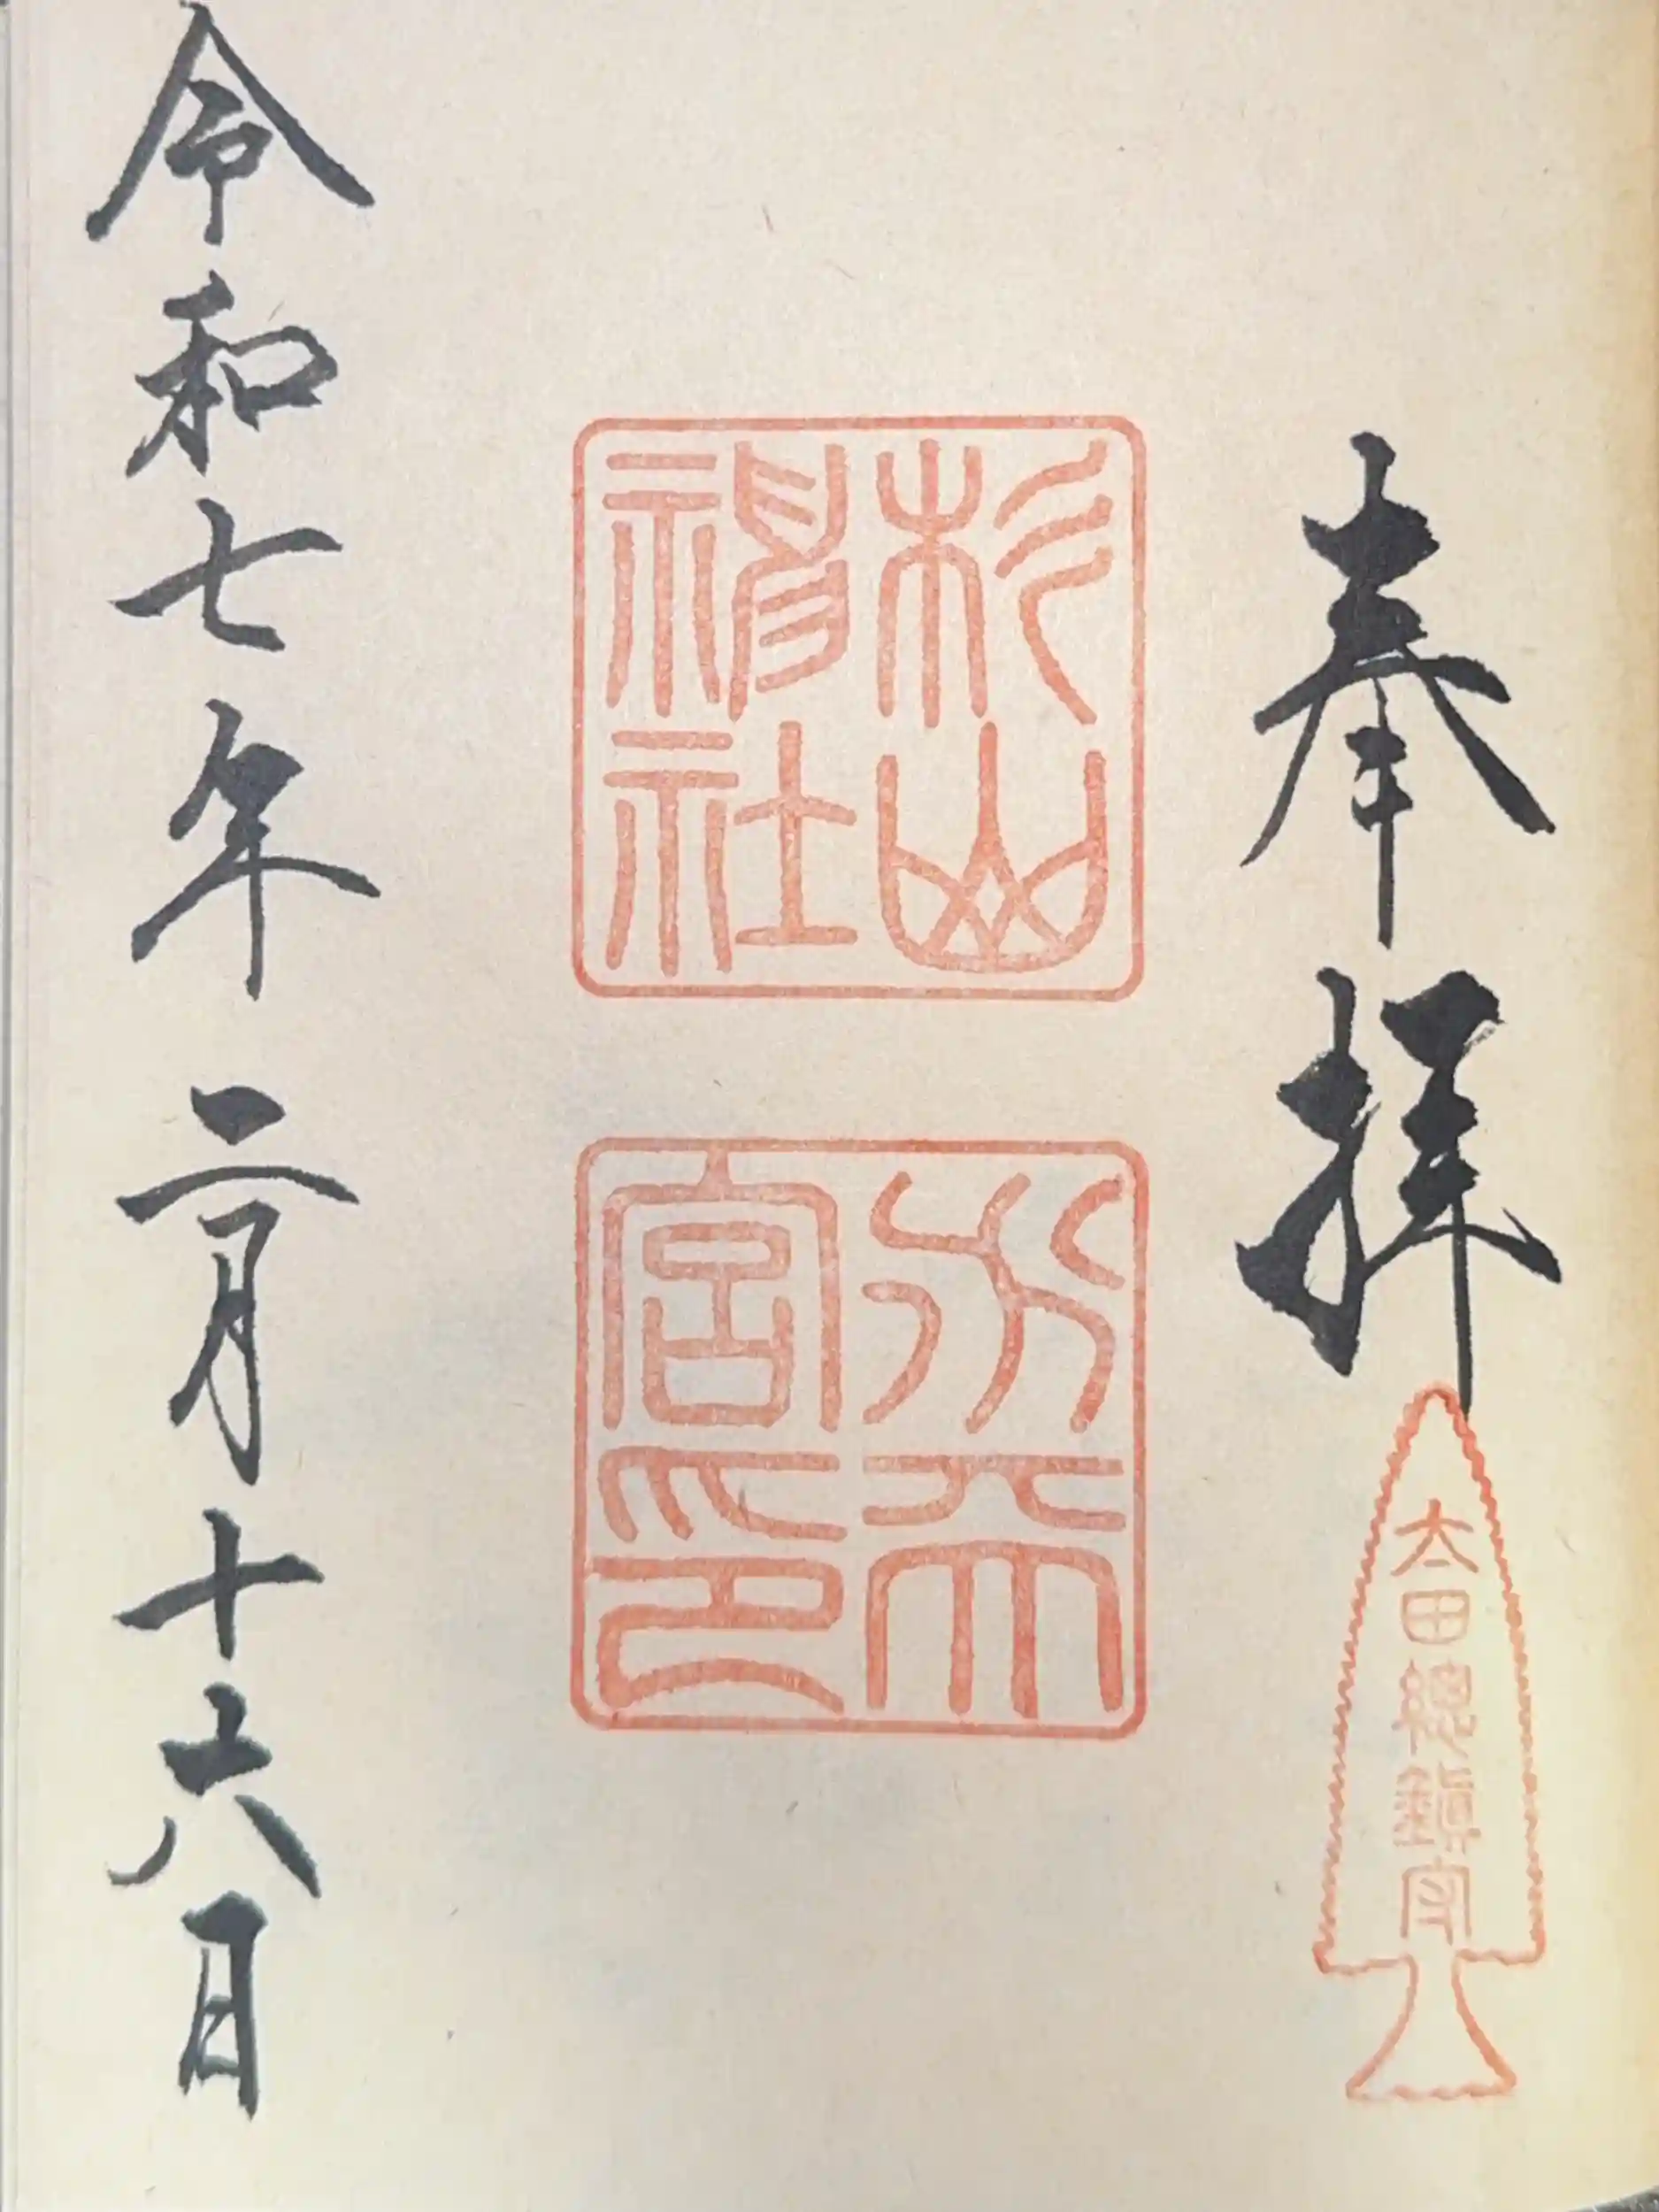 奉拝
太田総鎮守
杉山
神社
水天
宮印
令和七年二月十六日